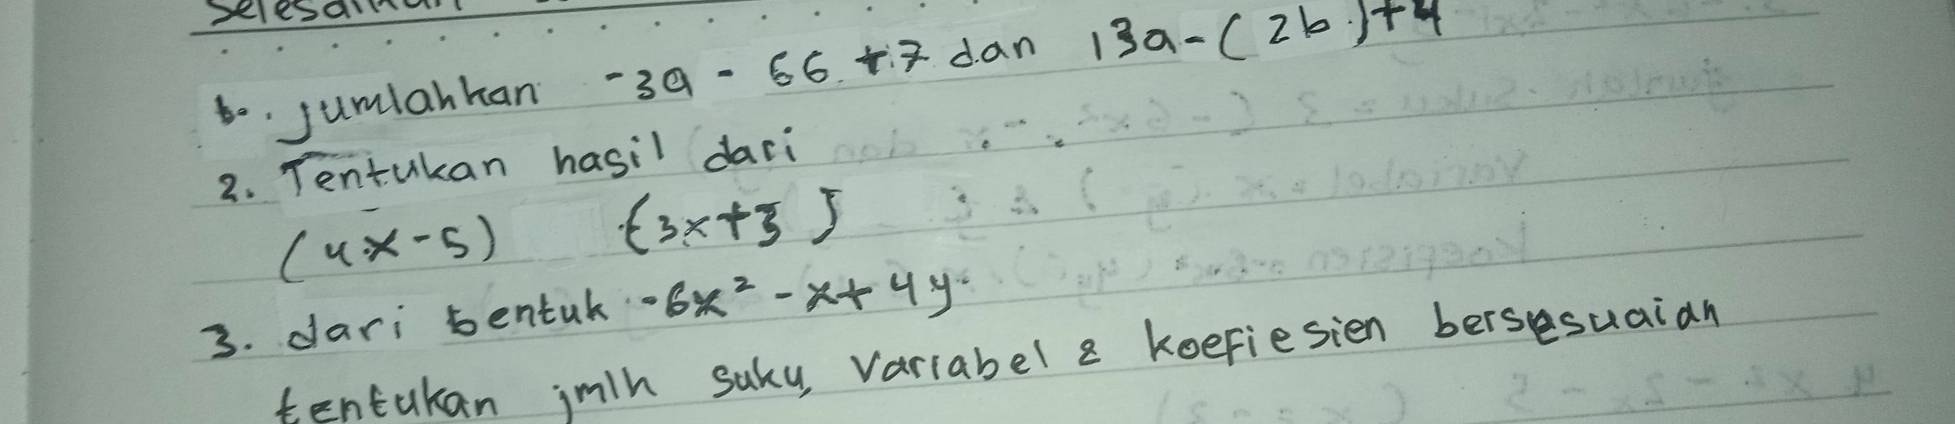 Selesaikan
1. jumlahkan -3a - 6b + 7 dan 13a - (2b) + 4
2. Tentukan hasil dari
(4x - 5) (3x + 3)
3. dari bentuk -6x² - x + 4y
tentukan jmlh suku, Variabel & koefiesien bersesuaian